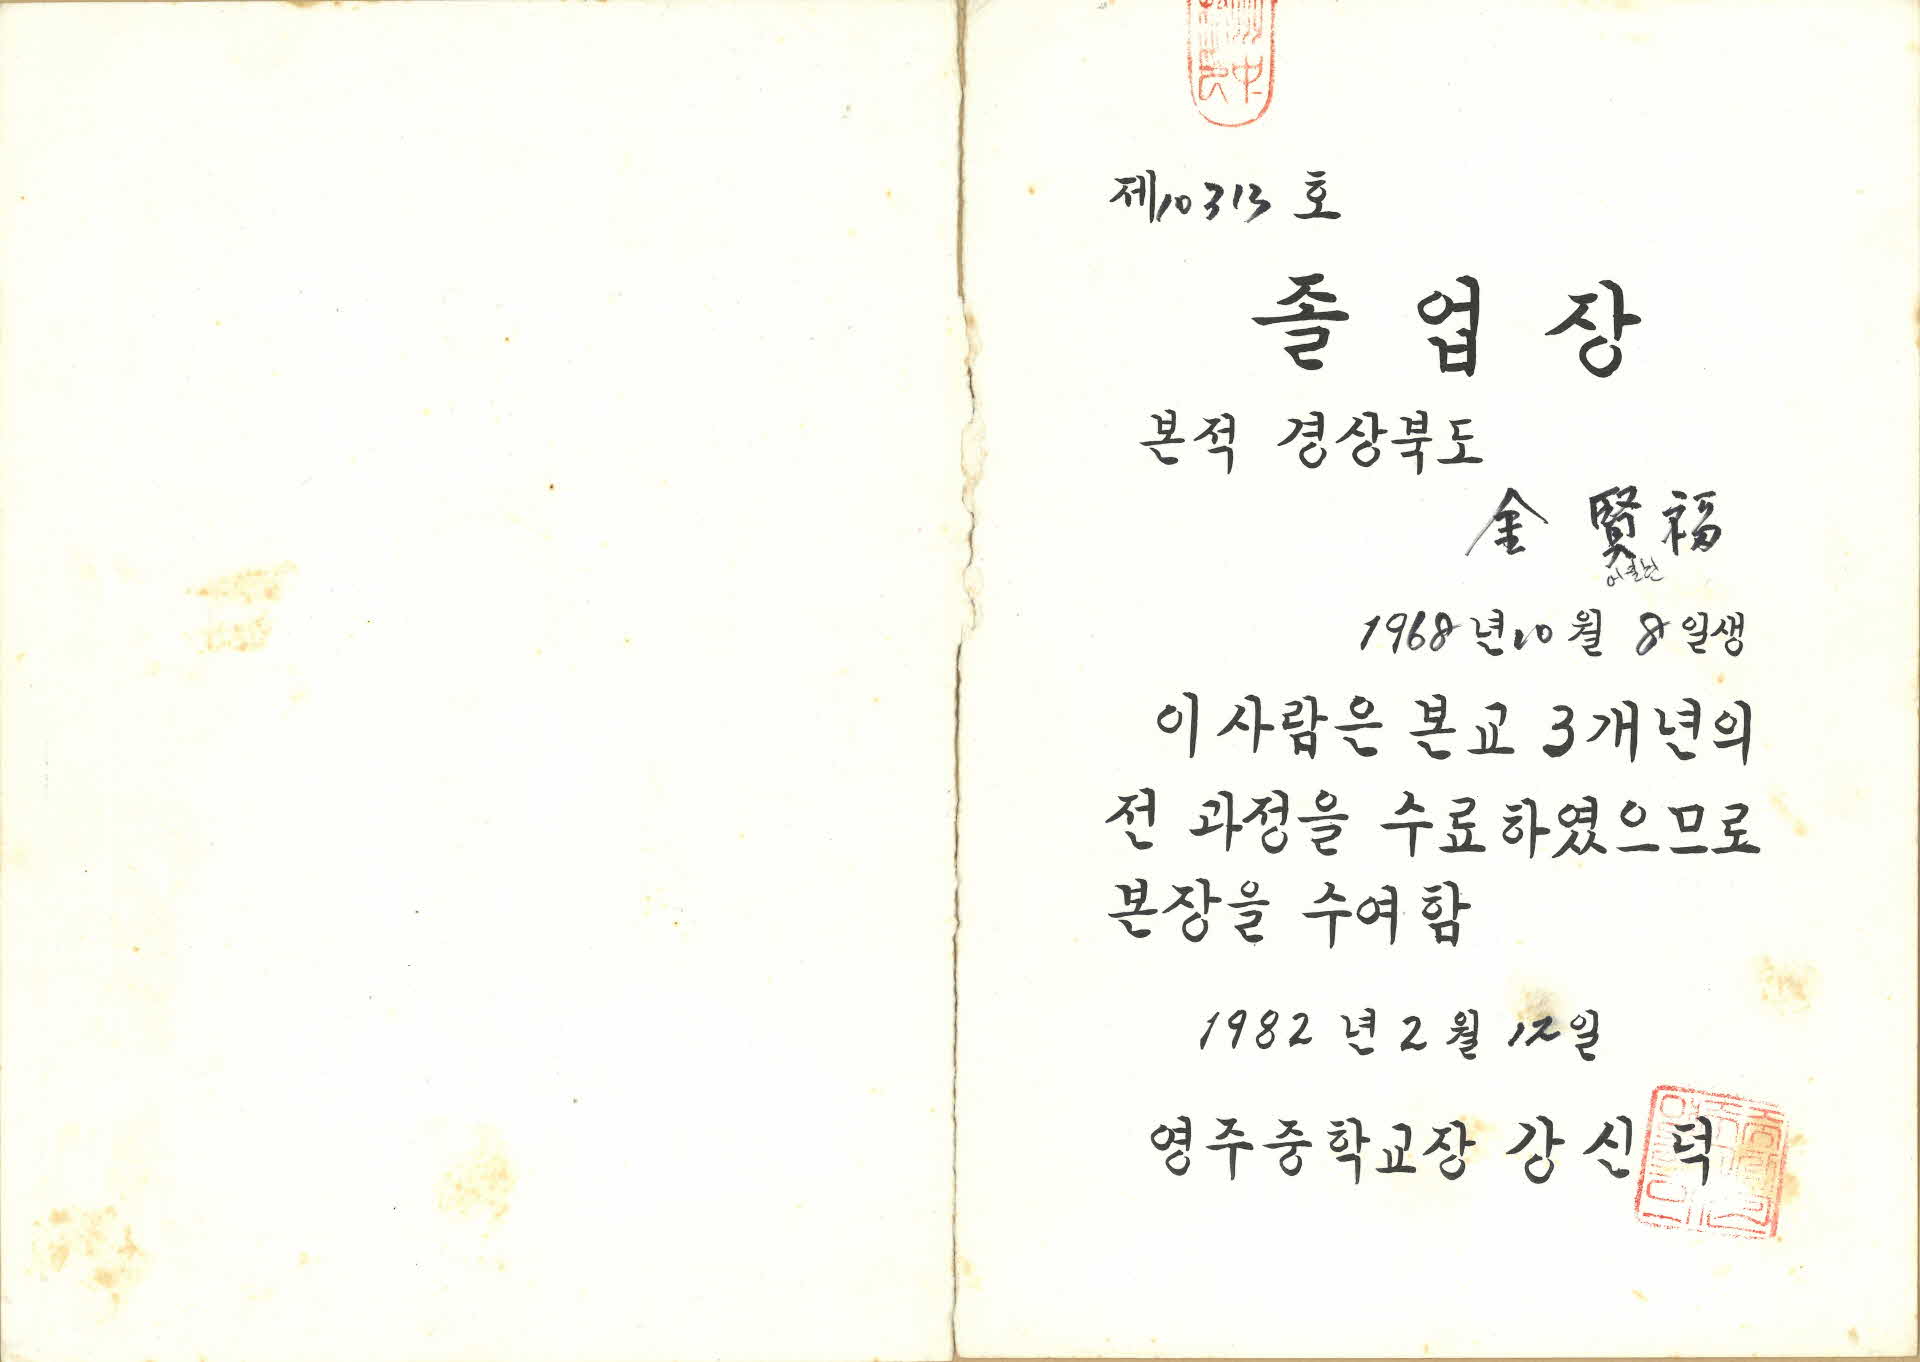 제10313호
졸업장
본적 경상북도
金賢福
1968년10월 8일생
이 사람은 본교 3개년의
전 과정을 수료하였으므로
본장을 수여함
1982년 2월 12일
영주중학교장 강신덕